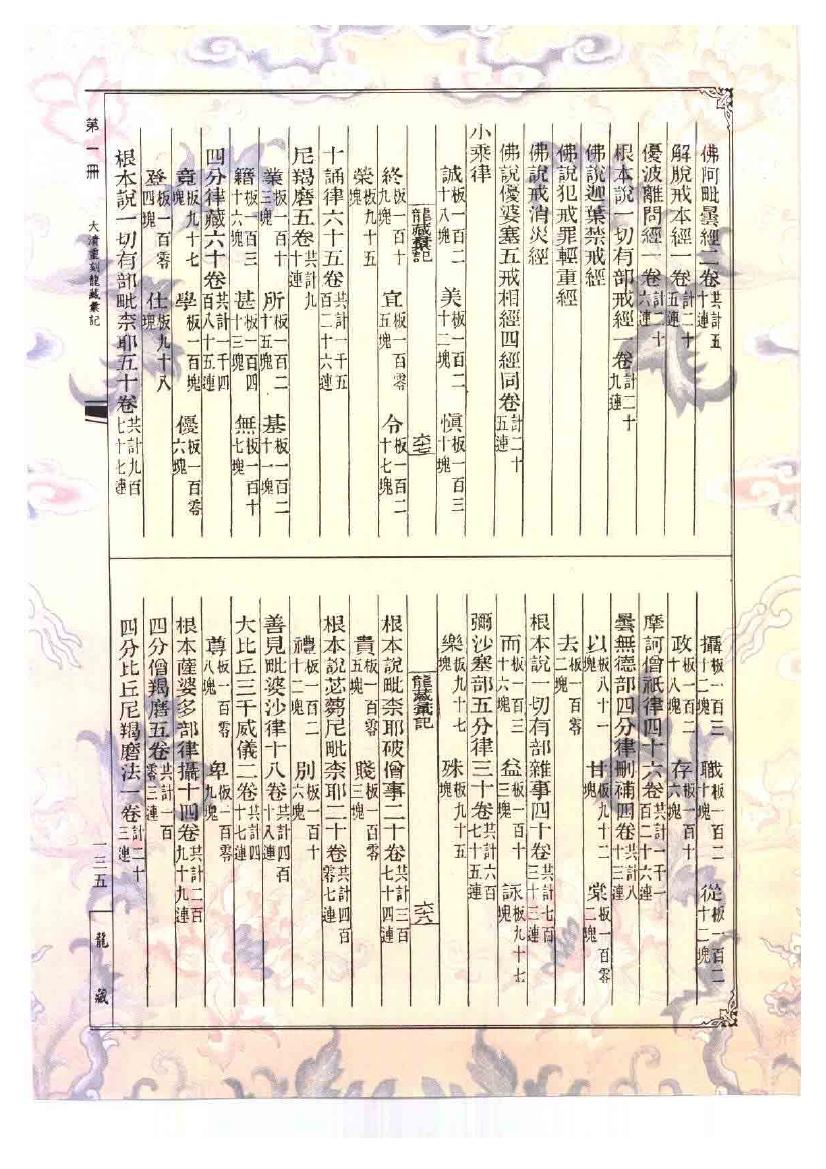 佛阿毗曇經二卷共計五十連
解脫戒本經一卷計二十五連
優波離問經一卷計二十六連
根本說一切有部戒經一卷計二十九連
佛說迦葉禁戒經
佛說犯戒罪輕重經
佛說戒消災經
佛說優婆塞五戒相經四經同卷計二十五連
小乘律
誠板一百二十八塊 美板一百二十二塊 慎板一百三十塊
龍藏彙記 六七
終板一百十九塊 宜板一百零五塊 令板一百二十七塊
榮板九十五塊
十誦律六十五卷共計一千五百二十六連
尼羯磨五卷共計九十連
業板一百十三塊 所板一百二十五塊 基板一百二十一塊
籍板一百三十六塊 甚板一百四十三塊 無板一百十七塊
四分律藏六十卷共計一千四百八十五連
竟板九十七塊 學板一百塊 優板一百零六塊
登板一百零四塊 仕板九十八塊
根本說一切有部毗柰耶五十卷共計九百七十七連
攝板一百三十二塊 職板一百二十塊 從板一百二十二塊
政板一百二十八塊 存板一百十六塊
摩訶僧祇律四十六卷共計一千一百二十六連
曇無德部四分律刪補四卷共計八十三連
以板八十一塊 甘板九十二塊 棠板一百零二塊
去板一百零二塊
根本說一切有部雜事四十卷共計七百三十三連
而板一百三十六塊 益板一百十三塊 詠板九十七塊
彌沙塞部五分律三十卷共計六百七十五連
樂板九十七塊 殊板九十五塊
龍藏彙記 六八
根本說毗柰耶破僧事二十卷共計三百七十四連
貴板一百零五塊 賤板一百零三塊
根本說苾蒭尼毗柰耶二十卷共計四百零七連
禮板一百二十二塊 別板一百十六塊
善見毗婆沙律十八卷共計四百十八連
大比丘三千威儀二卷共計四十七連
尊板一百零八塊 卑板一百零九塊
根本薩婆多部律攝十四卷共計二百九十九連
四分僧羯磨五卷共計一百零三連
四分比丘尼羯磨法一卷計二十三連
第一冊 大清重刻龍藏彙記 一三五 龍藏